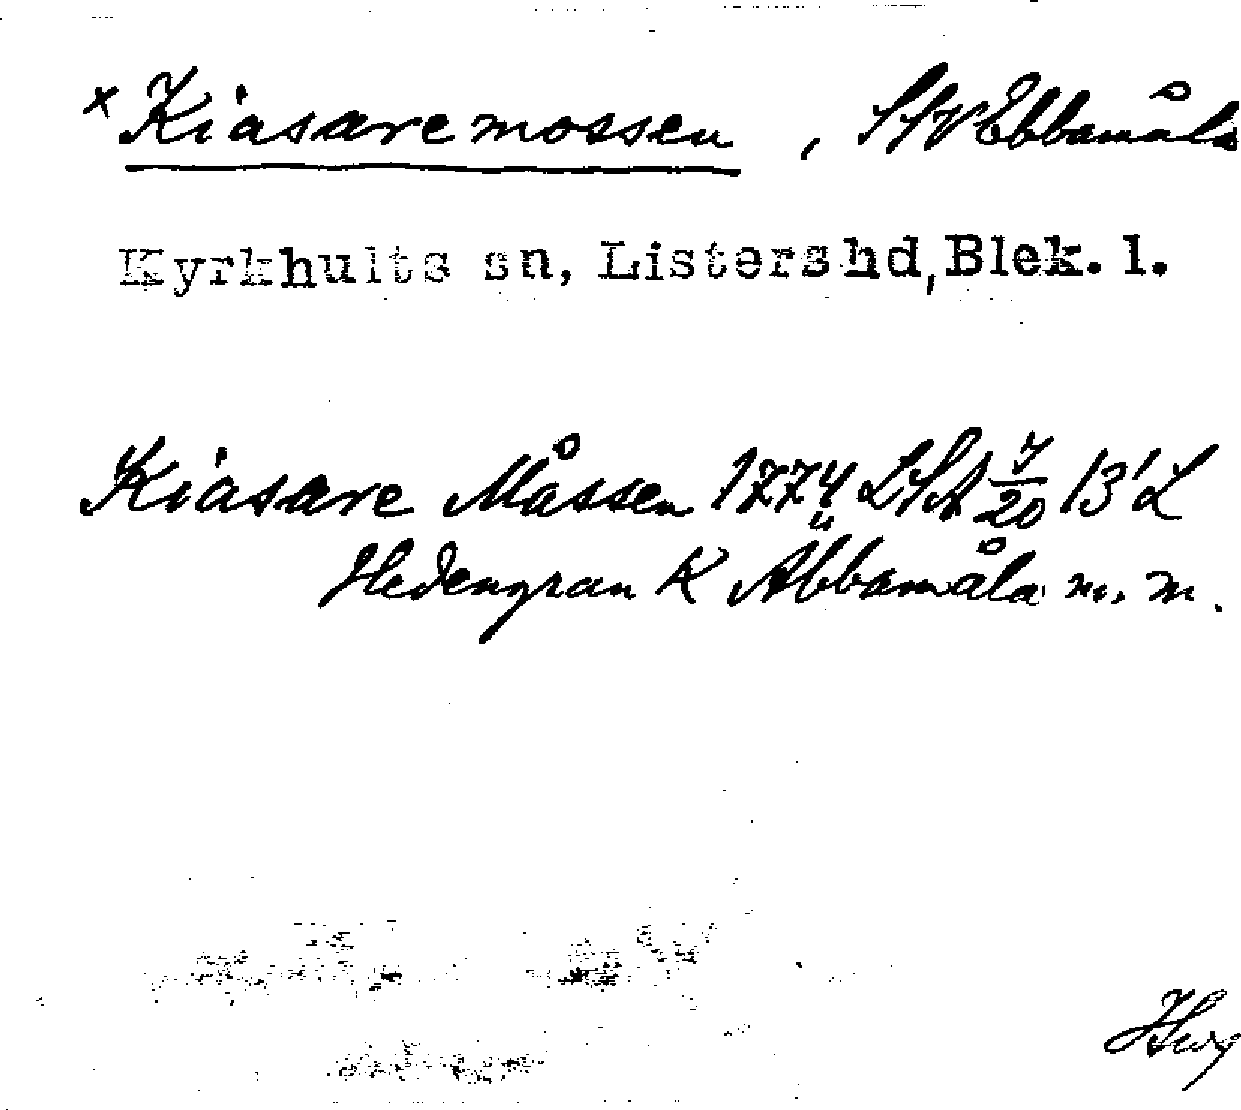 x Kiasaremossen, SSV Ebbamåla
Kyrkhults sn, Listers hd, Blek. l.
Kiasare Måssen 1774 LSA 7/20 13'L
Hedengran K Abbamåla m. m.